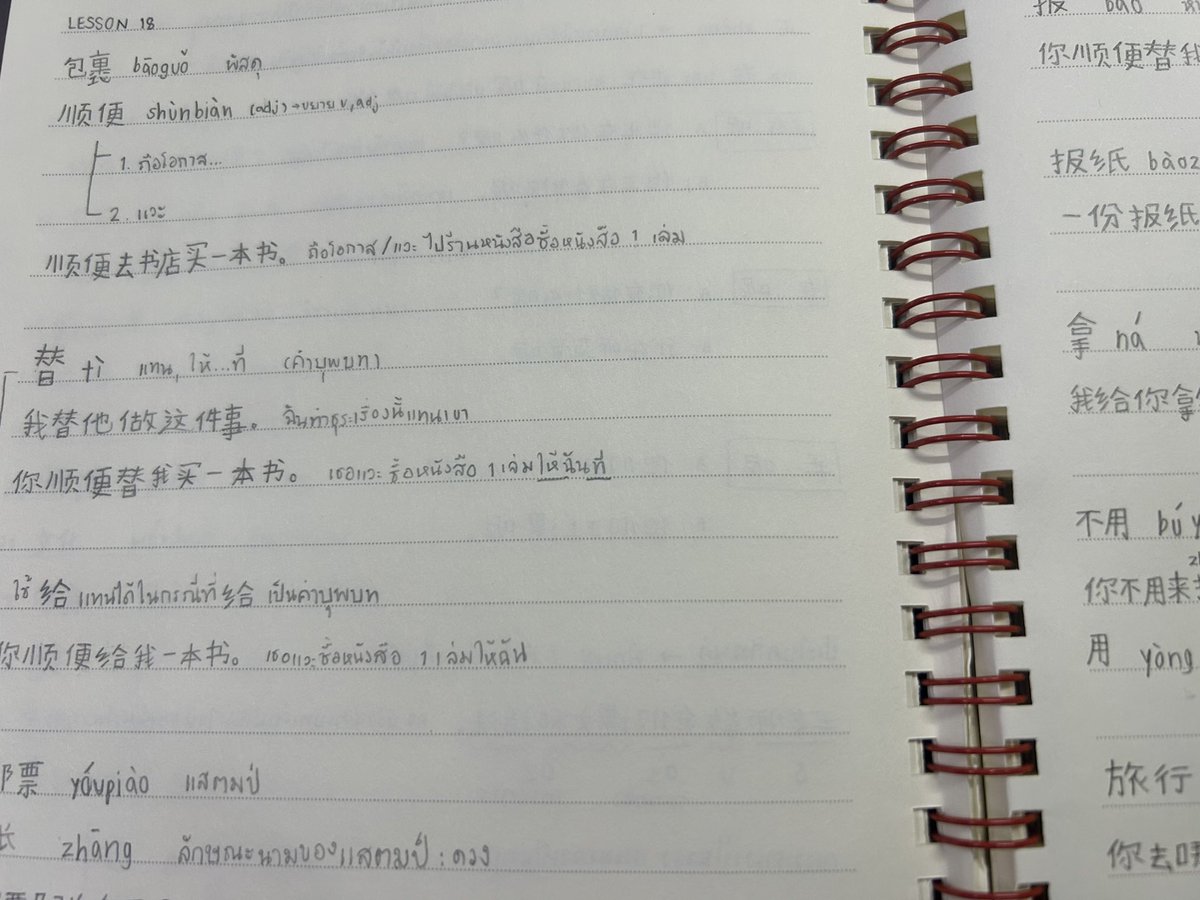 LESSON 18
包裹 bāoguǒ พัสดุ
顺便 shùnbiàn (adj) → ขยาย v, adj
1. ถือโอกาส...
2. แวะ
顺便去书店买一本书。 ถือโอกาส/แวะ ไปร้านหนังสือซื้อหนังสือ 1 เล่ม
替 tì แทน, ให้...ที (คำบุพบท)
我替他做这件事。 ฉันทำธุระเรื่องนี้แทนเขา
你顺便替我买一本书。 เธอแวะซื้อหนังสือ 1 เล่มให้ฉันที
ใช้ 给 แทนได้ในกรณีที่ 给 เป็นคำบุพบท
你顺便给我一本书。 เธอแวะซื้อหนังสือ 1 เล่มให้ฉัน
票 yóupiào แสตมป์
zhāng ลักษณะนามของแสตมป์ : ดวง
报 bào
你顺便替我
报纸
一份报纸
拿 ná
我给你拿
不用
你不用来
用 yòng
旅行
你去